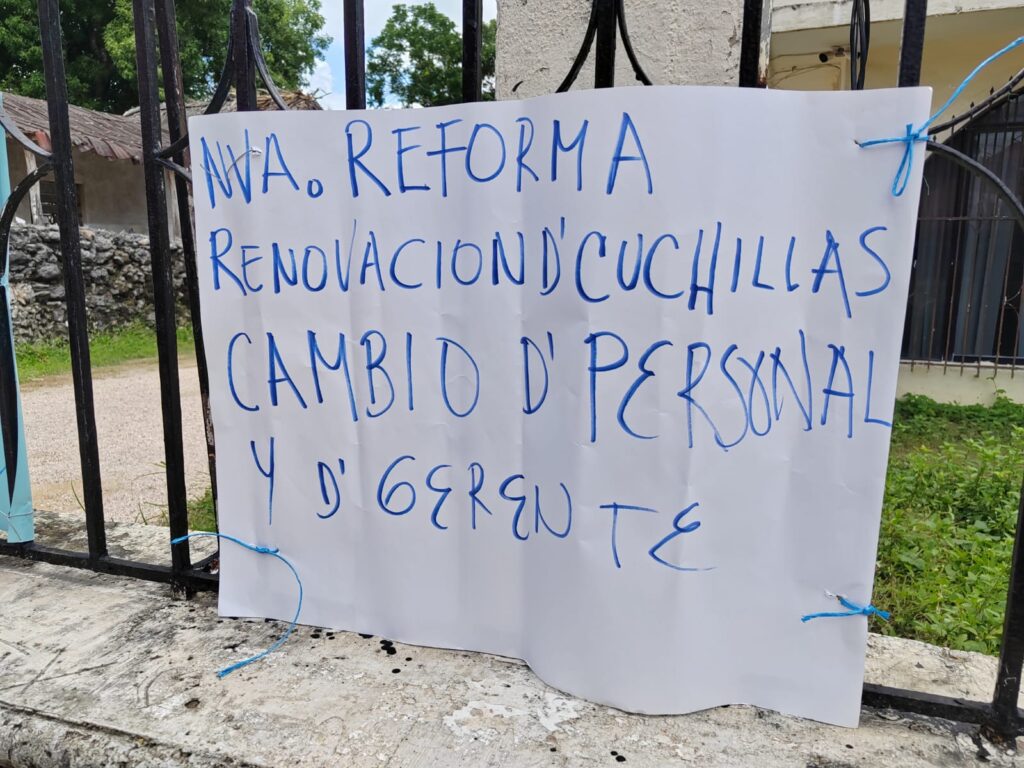 NVA. REFORMA
RENOVACION D' CUCHILLAS
CAMBIO D' PERSONAL
Y D' GERENTE